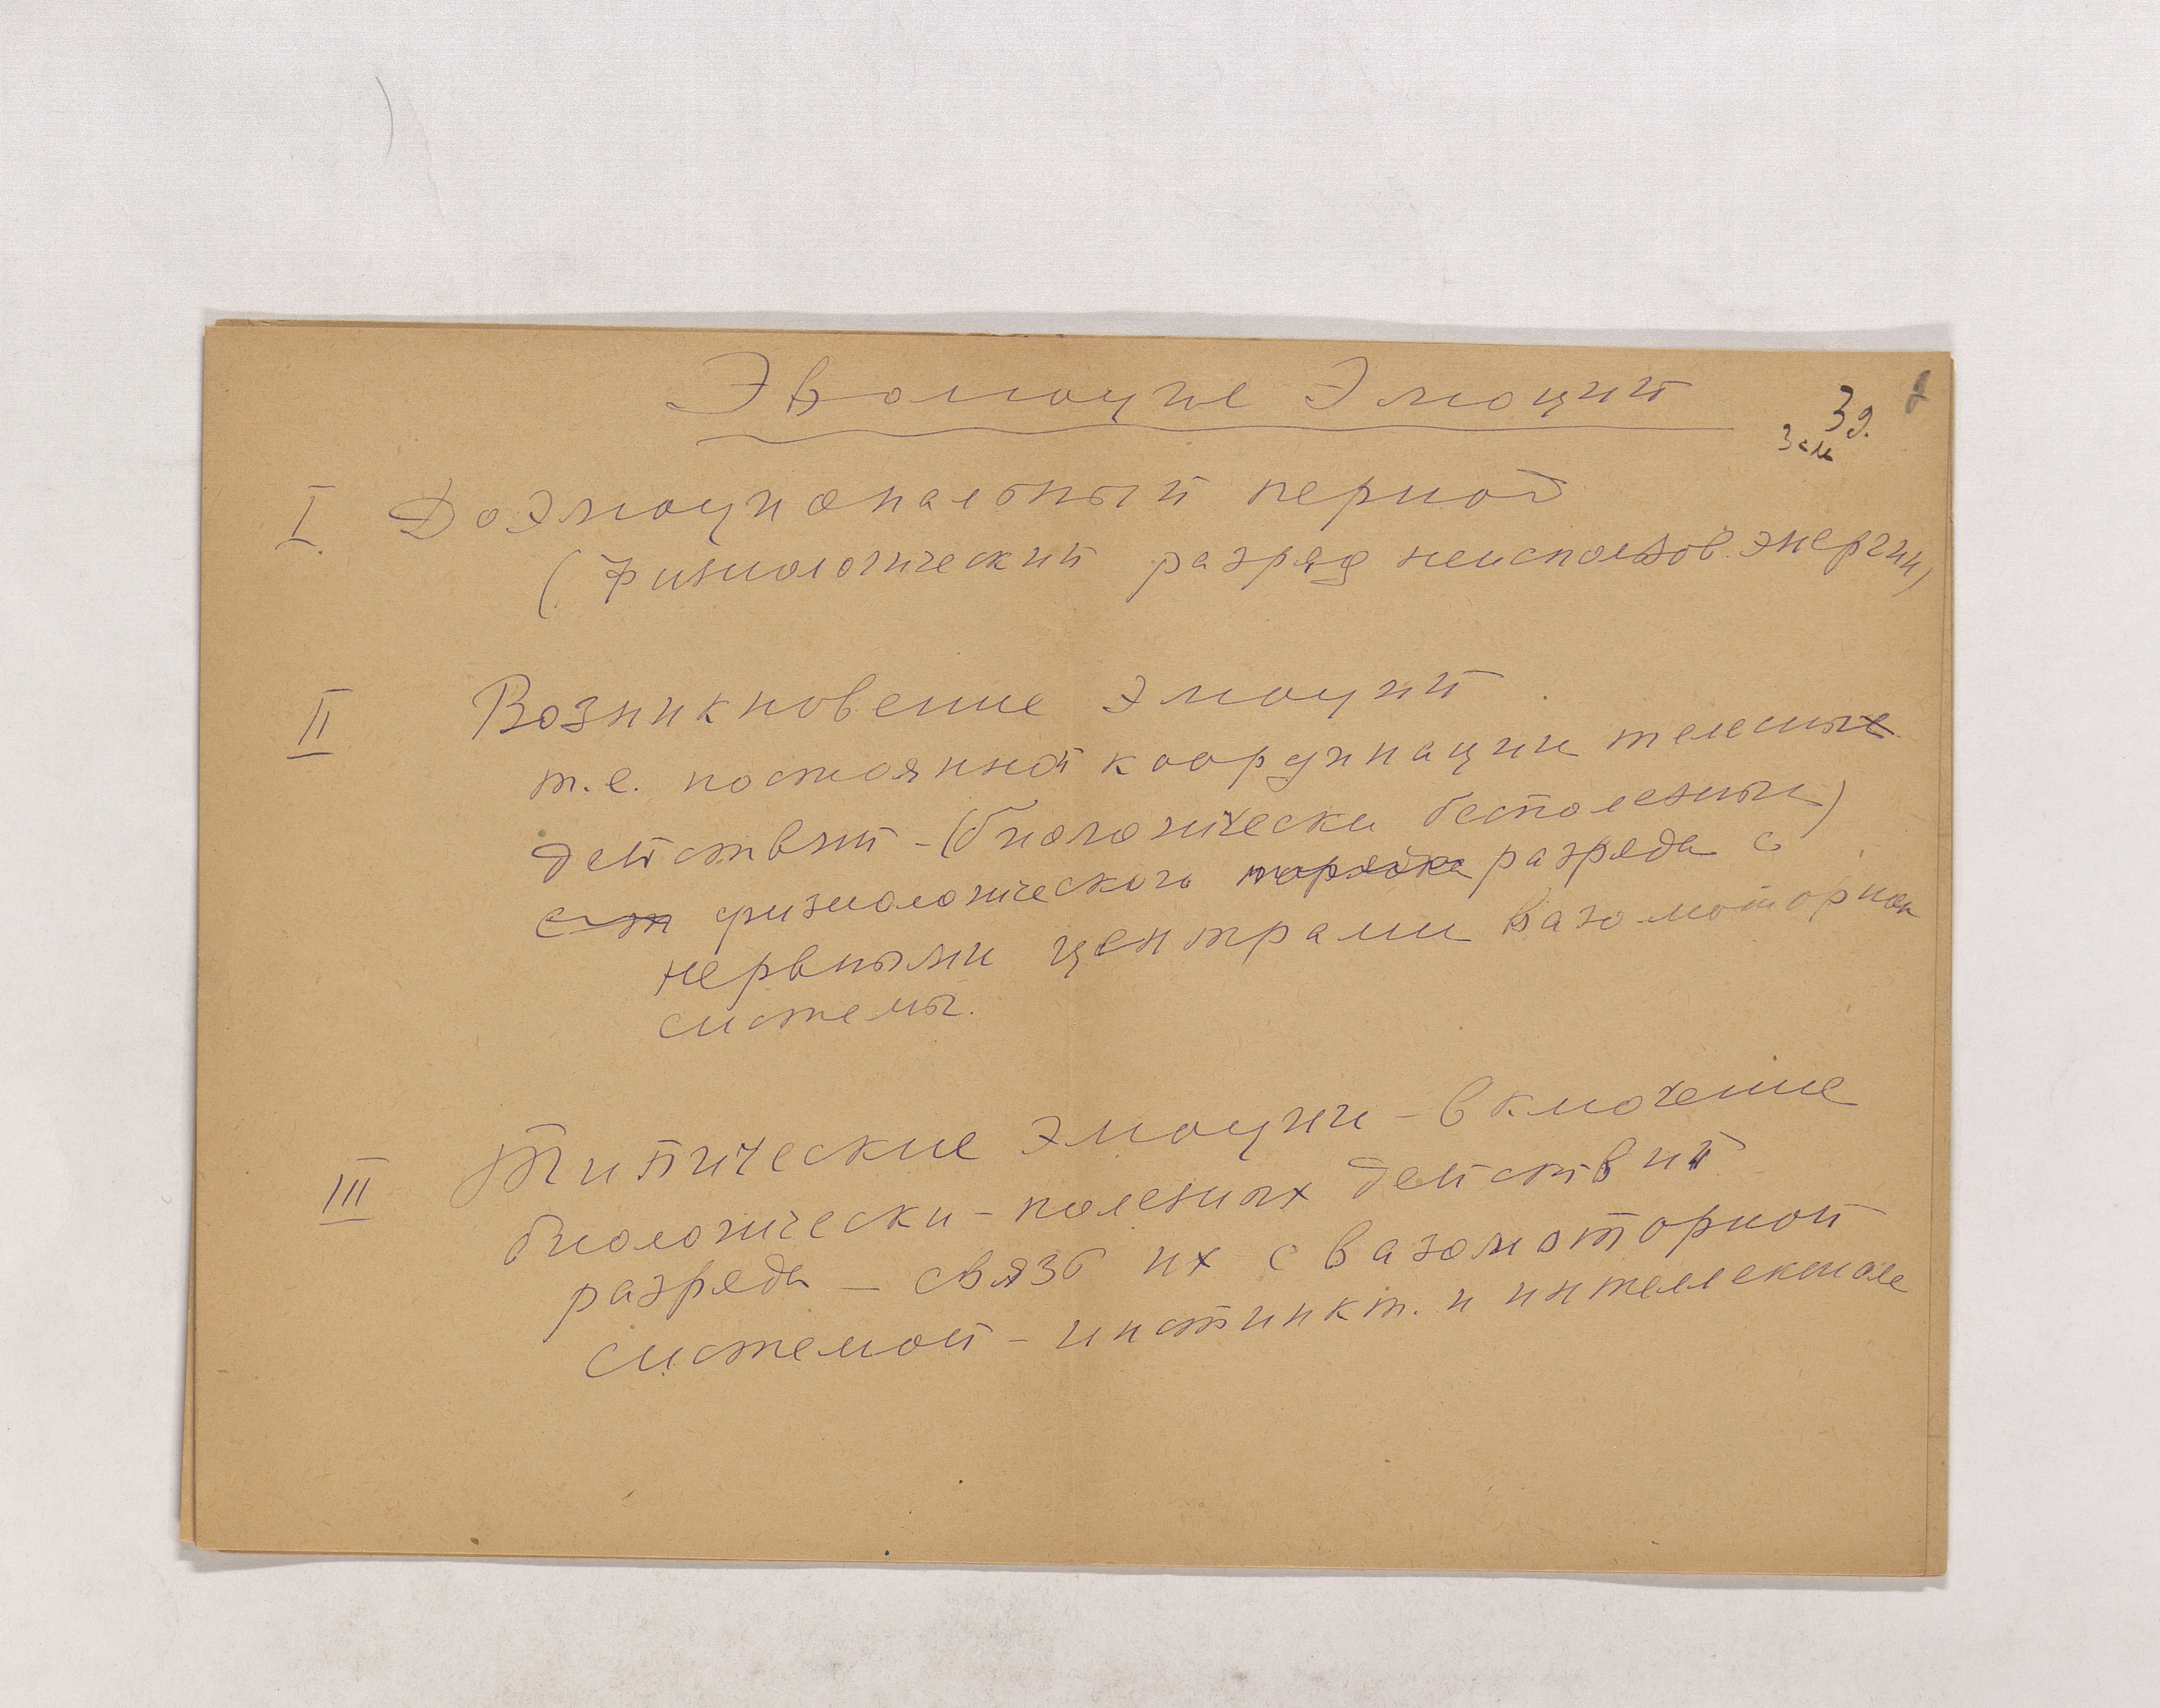 Эволюция Эмоций
39.
3см
I. Доэмоциональный период
(Физиологический разряд неиспользов. энергии)
II Возникновение эмоций
т.е. постоянной координации телесных
действий - (биологически бесполезных)
физиологического разряда с
нервными центрами вазомоторной
системы.
III Типические эмоции - включение
биологически - полезных действий
разряда - связь их с вазомоторной
системой - инстинкт. и интеллектуале